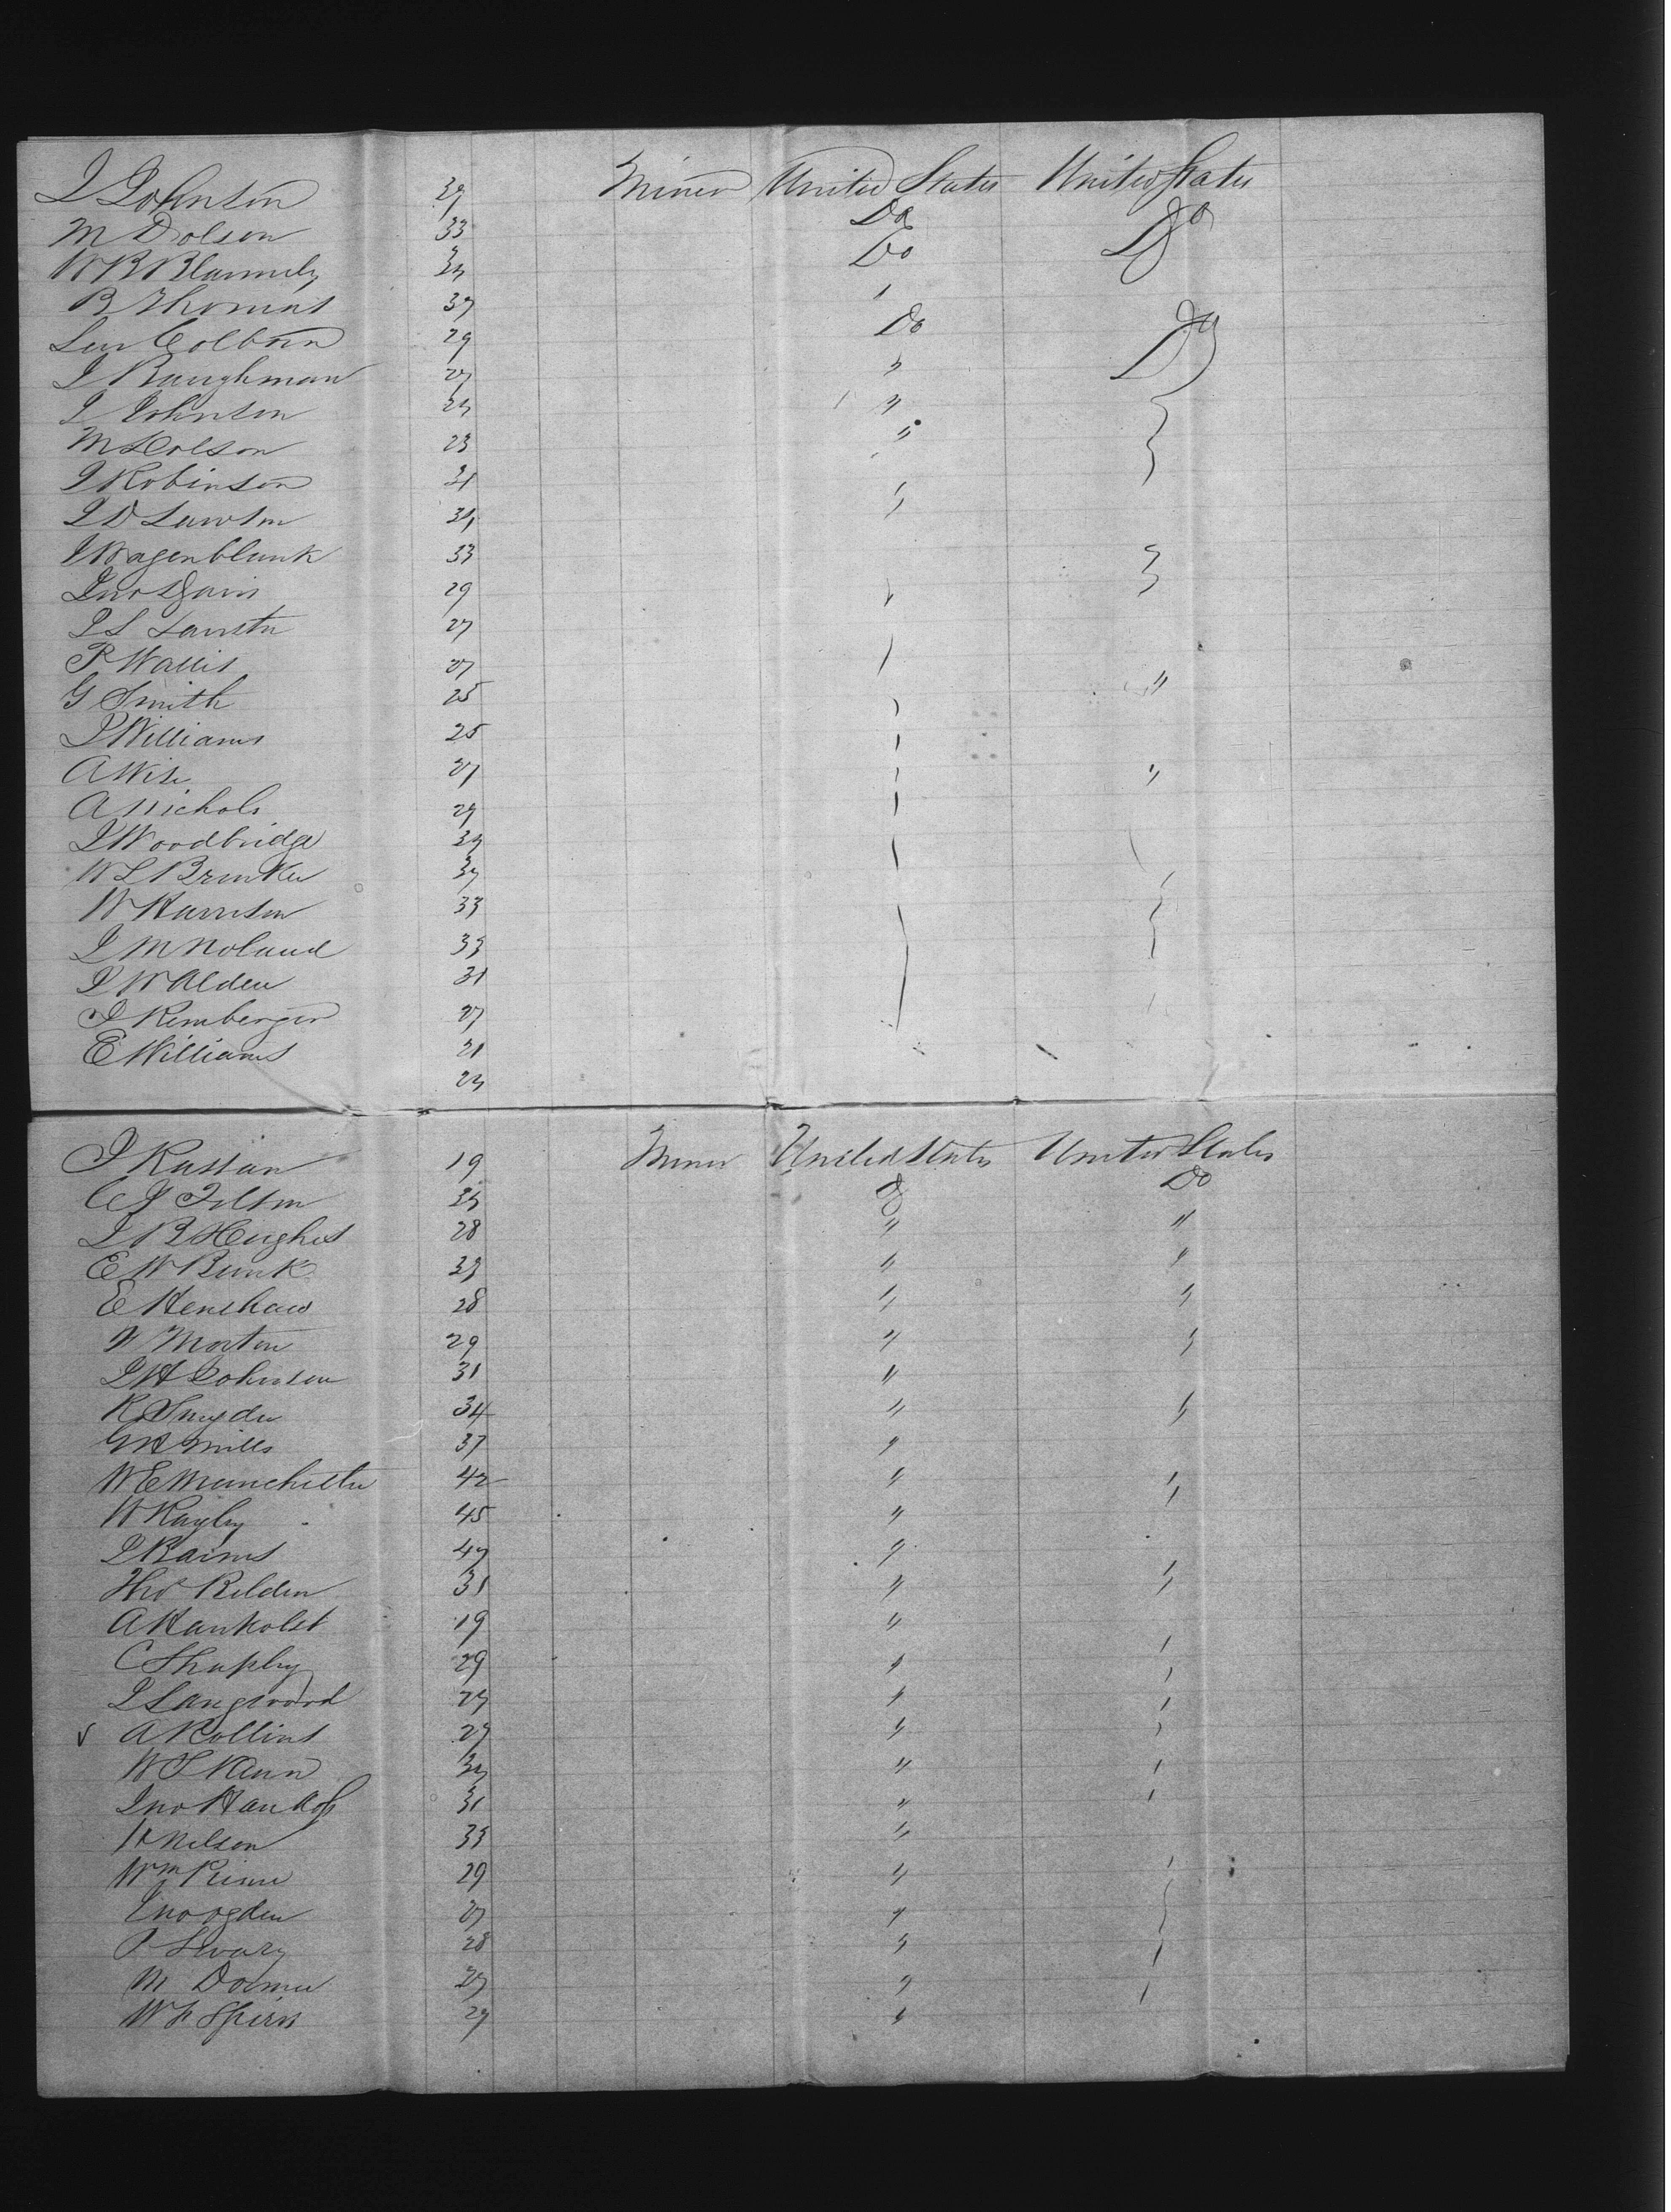 J Johnson 39 Miner United States United States
M Dolson 33 Do Do
W B 34 Do
B Thomas 37
Levi Colborn 29 Do Do
J Baughman 27 "
J Johnson 24 "
M Dolson 23 "
J Robinson 21 "
J D Lawson 34
J Wagenblunk 33
Jno Davis 29
J S 27
P Wallis 27
G Smith 25 "
J Williams 25
A Wise 27 "
A Nichols 29
J Woodbridge 34
W L Brunker 37
W Harrison 33
J M Noland 33
J W Alden 31
J Remberger 27
E Williams 21
24
J Kassan 19 Miner United States United States
C J Tilson 34 Do Do
J B Hughes 28 " "
E W Bunk 33 " "
E Henshaw 28 " "
W Morton 29 " "
J H Johnson 31 "
R Snyder 34 " "
G H Mills 37 "
W E Manchester 42 " "
W Rayly 45 "
J Baines 47 "
Belden 31 " "
A Hankolst 19 "
C Shaply 29 "
J Langwood 24 "
A Rollins 27 "
W S Kann 34 "
Jno 31 "
H Nelson 33 "
Wm 29 "
Jno Ogden 27 "
P 28 "
M 27 "
W F Spiers 27 "